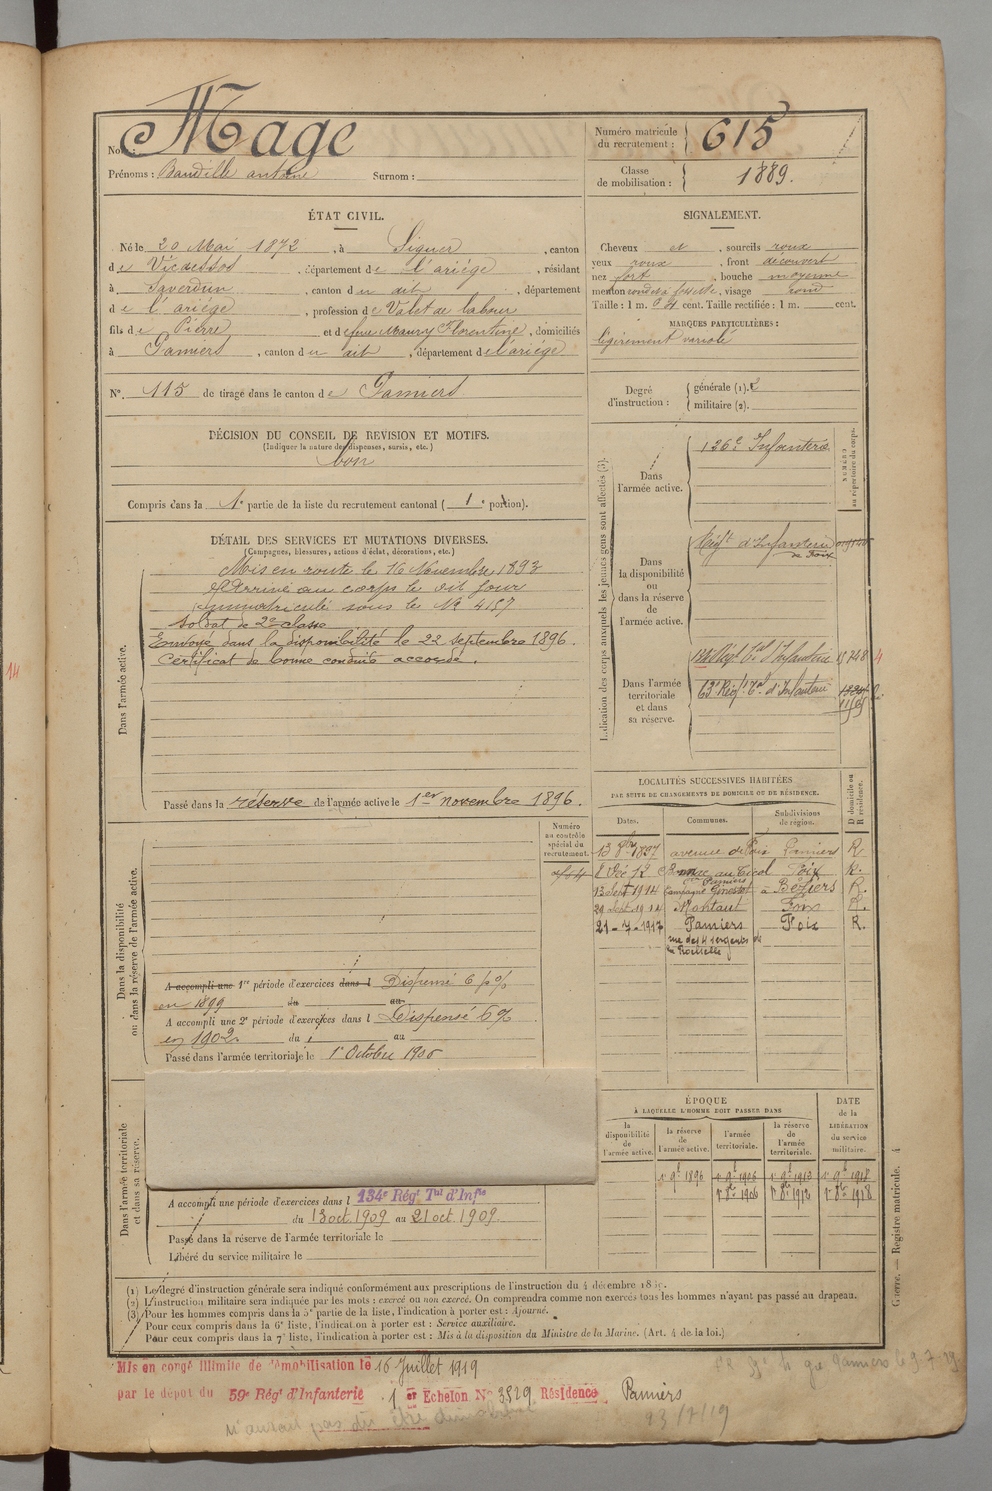 Nom : Mage
Prénoms : Baudille antoine Surnom :
Numéro matricule du recrutement : 615
Classe de mobilisation : 1889.
ÉTAT CIVIL.
Né le 20 Mai 1872, à Siguer, canton
de Vicdessos, département de l'ariége, résidant
à Saverdun, canton du dit, département
de l'ariége, profession de Valet de labour
fils de Pierre et de feue Maury Florentine, domiciliés
à Pamiers, canton du dit, département de l'ariége
N°. 115 de tirage dans le canton de Pamiers
DÉCISION DU CONSEIL DE REVISION ET MOTIFS.
(Indiquer la nature des dispenses, sursis, etc.)
bon
Compris dans la 1e partie de la liste du recrutement cantonal ( 1e portion).
SIGNALEMENT.
Cheveux et, sourcils roux
yeux roux, front découvert
nez fort, bouche moyenne
menton rond à fossette, visage rond
Taille : 1 m. 64 cent. Taille rectifiée : 1 m. cent.
MARQUES PARTICULIÈRES :
légèrement variolé
Degré d'instruction : générale (1). 2
militaire (2).
DÉTAIL DES SERVICES ET MUTATIONS DIVERSES.
(Campagnes, blessures, actions d'éclat, décorations, etc.)
Dans l'armée active.
Mis en route le 16 Novembre 1893
Arrivé au corps le dit jour
immatriculé sous le N° 4157
Soldat de 2e classe
Envoyé dans la disponibilité le 22 septembre 1896.
Certificat de bonne conduite accordé.
Passé dans la réserve de l'armée active le 1er novembre 1896.
Indication des corps auxquels les jeunes gens sont affectés (3).
NUMÉRO au répertoire du corps.
Dans l'armée active.
126e Infanterie
Dans la disponibilité ou dans la réserve de l'armée active.
Régt d'Infanterie de Foix
Dans l'armée territoriale et dans sa réserve.
134e Régt Tal d'Infanterie 15748 4
63e Régt Tal d'Infanterie
LOCALITÉS SUCCESSIVES HABITÉES
PAR SUITE DE CHANGEMENTS DE DOMICILE OU DE RÉSIDENCE.
Dates. Communes. Subdivisions de région. D domicile ou R résidence.
13 8bre 1897 avenue de Foix Pamiers R
2 Déc 12 Foix R.
13 Sept 1914 Campagne Ginestet à Béziers R.
29 Sept 1914 Montaut Foix R.
21-7-1917 Pamiers Foix R.
rue des 4 sergents de la Rochelle
Dans la disponibilité ou dans la réserve de l'armée active.
Numéro au contrôle spécial du recrutement.
A accompli une 1re période d'exercices dans l Dispensé 6 p%
en 1899 du au
A accompli une 2e période d'exercices dans l Dispensé 6 %
en 1902 du au
Passé dans l'armée territoriale le 1er Octobre 1906
Dans l'armée territoriale et dans sa réserve.
A accompli une période d'exercices dans l 134e Régt Tal d'Infie
du 13 oct. 1909 au 21 oct. 1909.
Passé dans la réserve de l'armée territoriale le
Libéré du service militaire le
ÉPOQUE
À LAQUELLE L'HOMME DOIT PASSER DANS
la disponibilité de l'armée active. la réserve de l'armée active. l'armée territoriale. la réserve de l'armée territoriale.
DATE de la LIBÉRATION du service militaire.
1er 9bre 1896 1er 9bre 1906 1er 9bre 1912 1er 9bre 1918
1er 8bre 1906 1er 8bre 1912 1er 8bre 1918
Guerre. — Registre matricule. 4
(1) Le degré d'instruction générale sera indiqué conformément aux prescriptions de l'instruction du 4 décembre
(2) L'instruction militaire sera indiquée par les mots : exercé ou non exercé. On comprendra comme non exercés tous les hommes n'ayant pas passé au drapeau.
(3) Pour les hommes compris dans la 5e partie de la liste, l'indication à porter est : Ajourné.
Pour ceux compris dans la 6e liste, l'indication à porter est : Service auxiliaire.
Pour ceux compris dans la 7e liste, l'indication à porter est : Mis à la disposition du Ministre de la Marine. (Art. 4 de la loi.)
Mis en congé illimité de démobilisation le 16 Juillet 1919
par le dépôt du 59e Régt d'Infanterie. 1er Echelon N° 3529 Résidence Pamiers
n'aurait pas dû être démobilisé
23/7/19
14